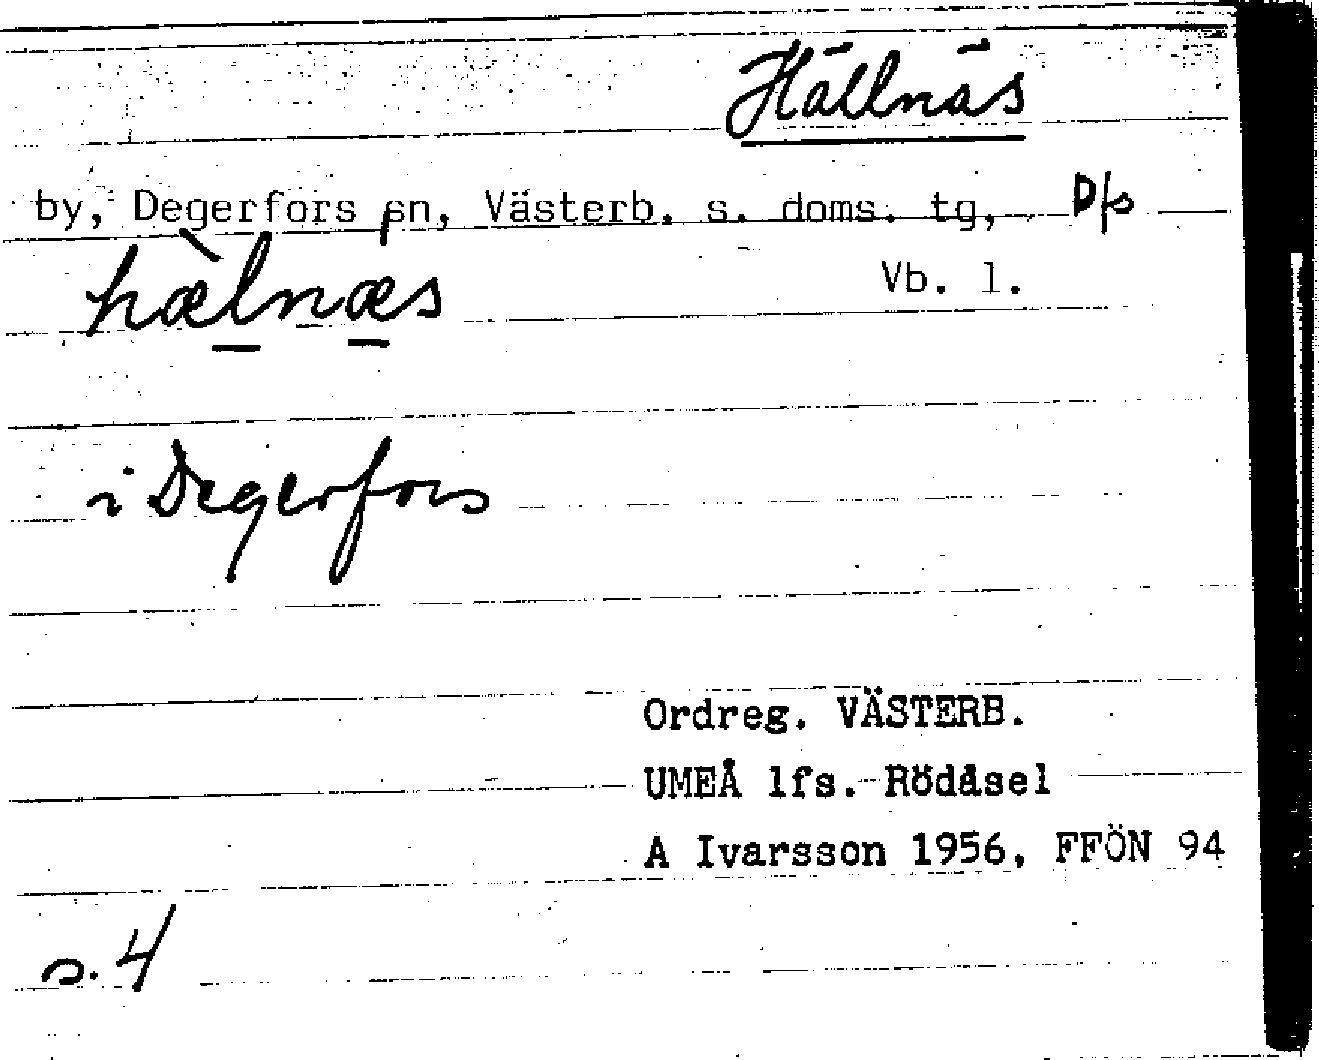 Hällnäs
by, Degerfors sn, Västerb. s. doms. tg, D/s
Vb. l.
hæ̀lnæs
i Degerfors
Ordreg. VÄSTERB.
UMEÅ lfs. Rödåsel
A Ivarsson 1956, FFÖN 94
s. 4